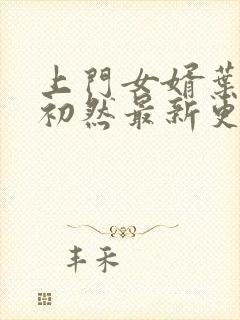 上門女婿葉
初然最新更
丰禾